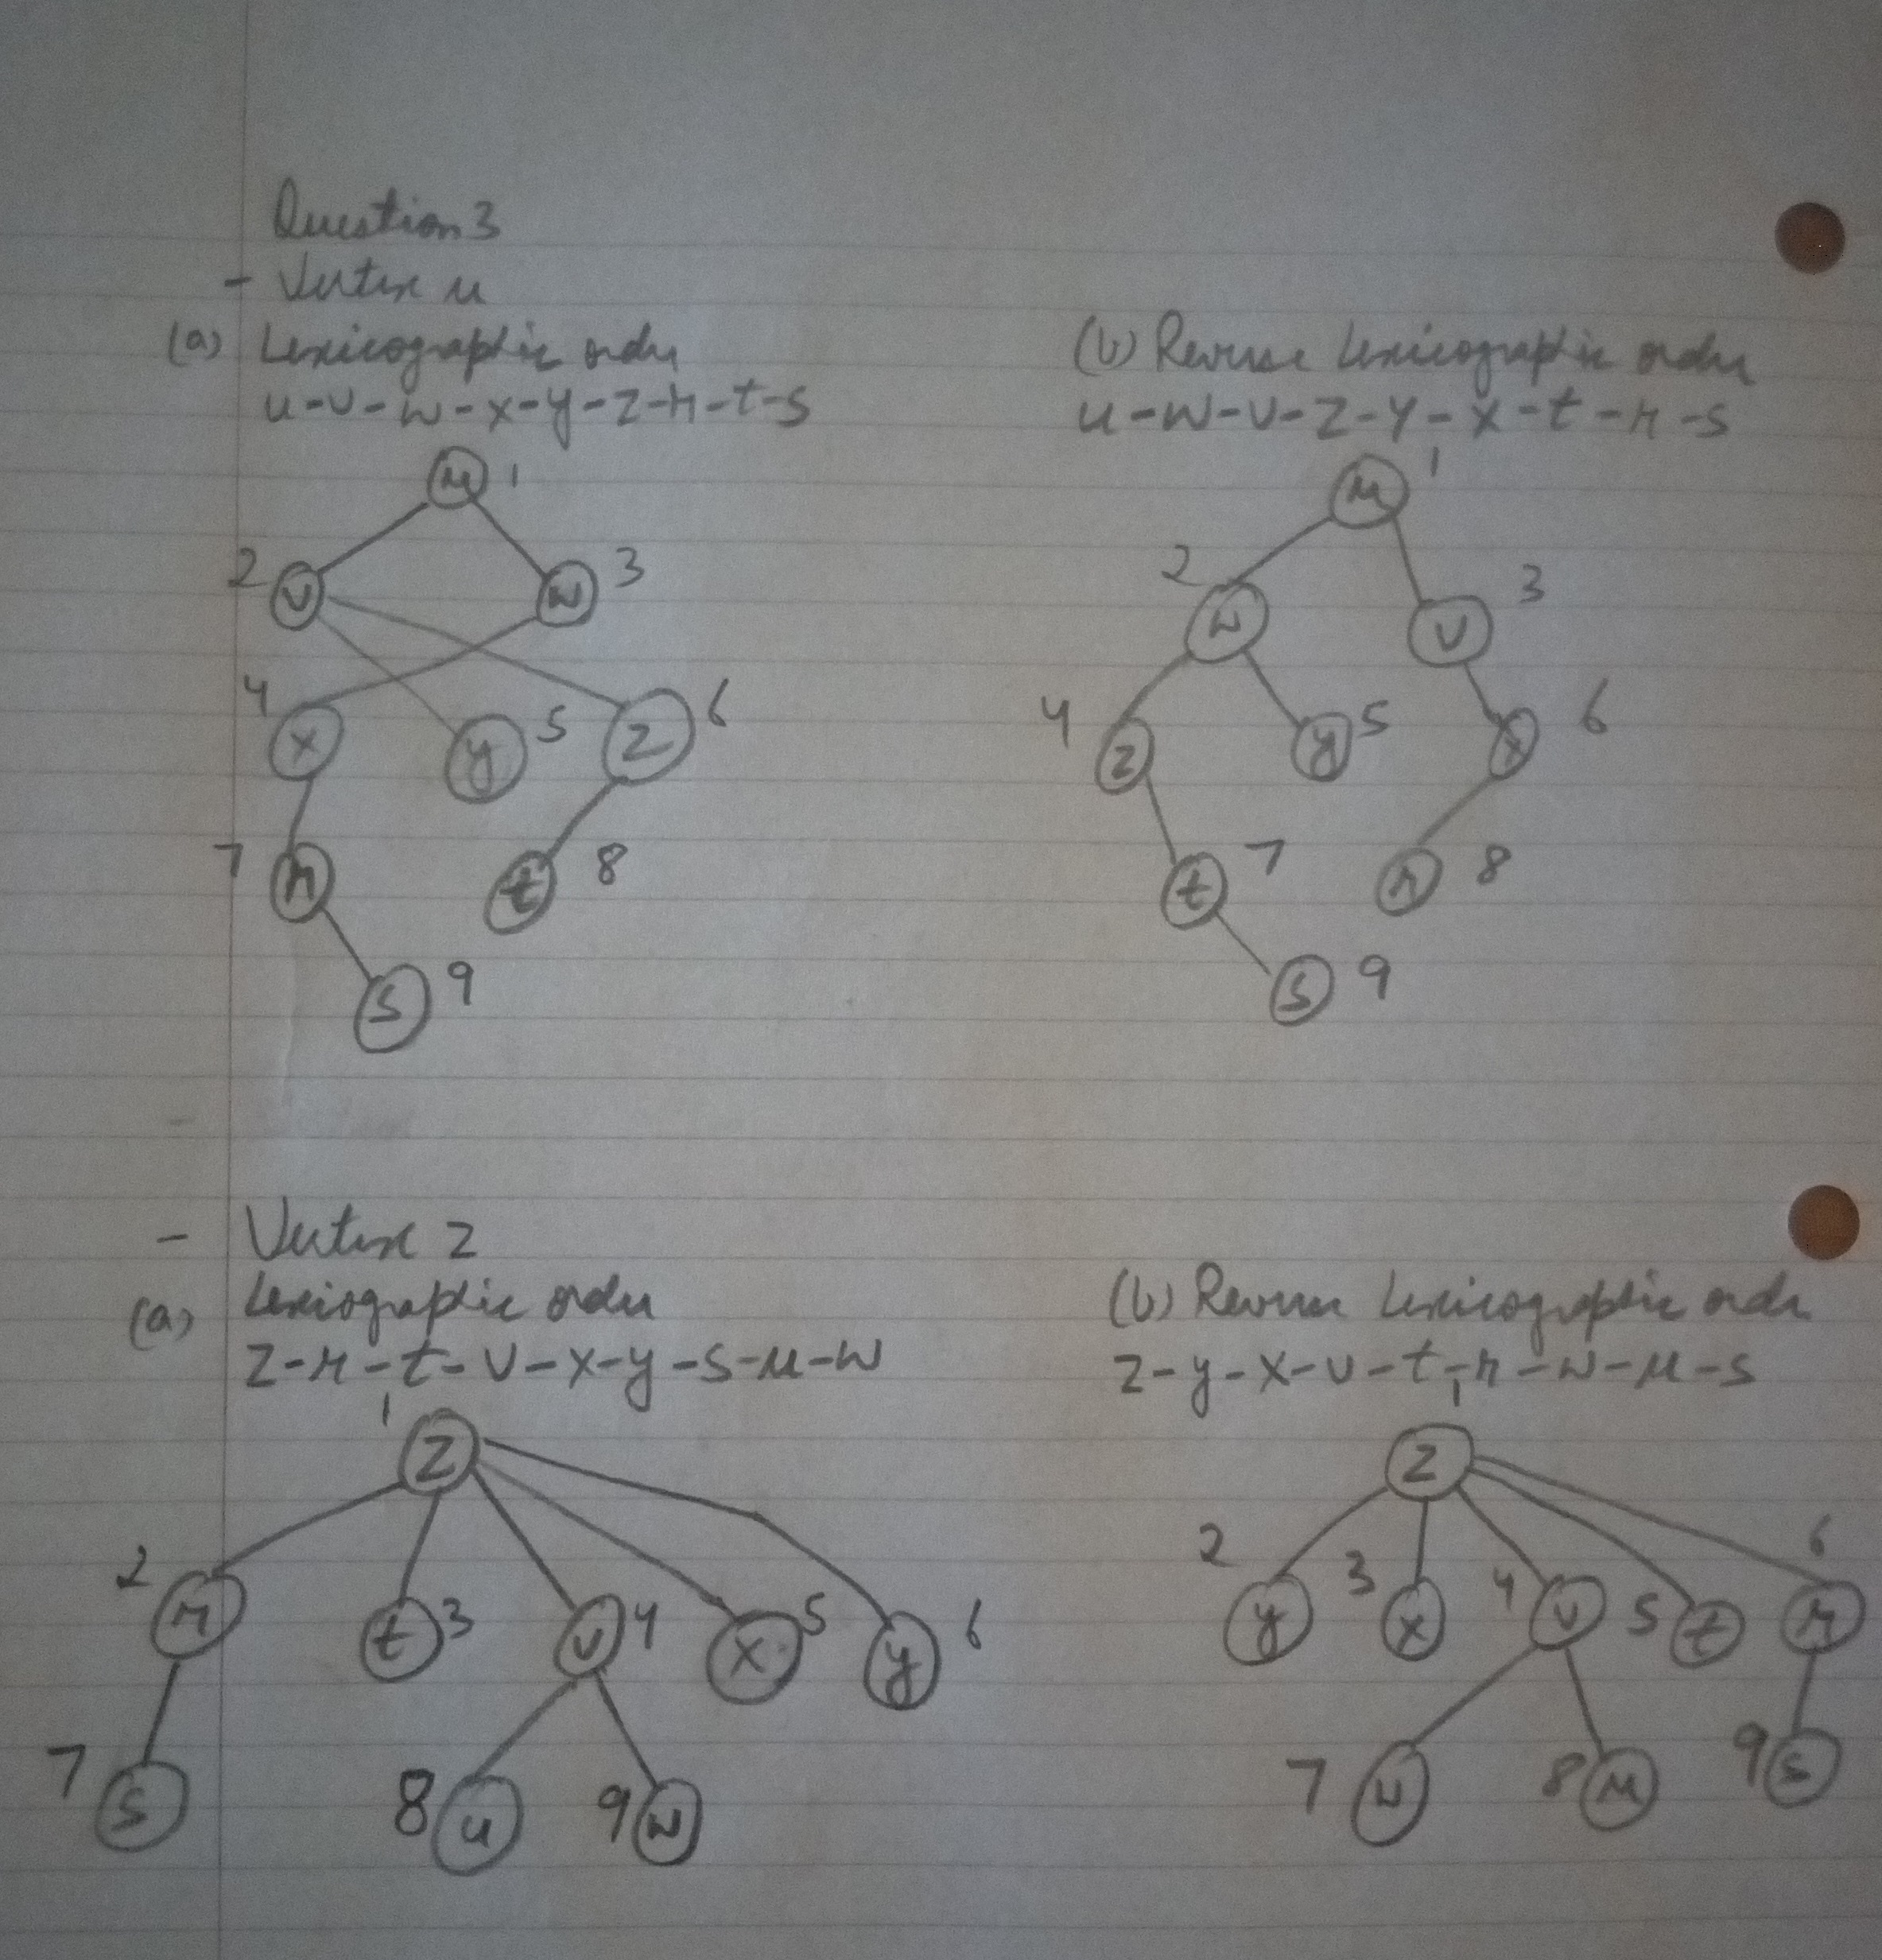 Question 3
- Vertex u
(a) Lexicographic order
u-v-w-x-y-z-r-t-s
u 1
2 v
w 3
4
x
y 5
z 6
7 r
t 8
s 9
(b) Reverse Lexicographic order
u-w-v-z-y-x-t-r-s
u 1
2 w
v 3
4 z
y 5
x 6
t 7
r 8
s 9
- Vertex z
(a) Lexiographic order
z-r-t-v-x-y-s-u-w
1
z
2 r
t 3
v 4
x 5
y 6
7 s
8 u
9 w
(b) Reverse Lexicographic order
z-y-x-v-t-r-w-u-s
1
z
2 y
3 x
4 v
5 t
6 r
7 w
8 u
9 s